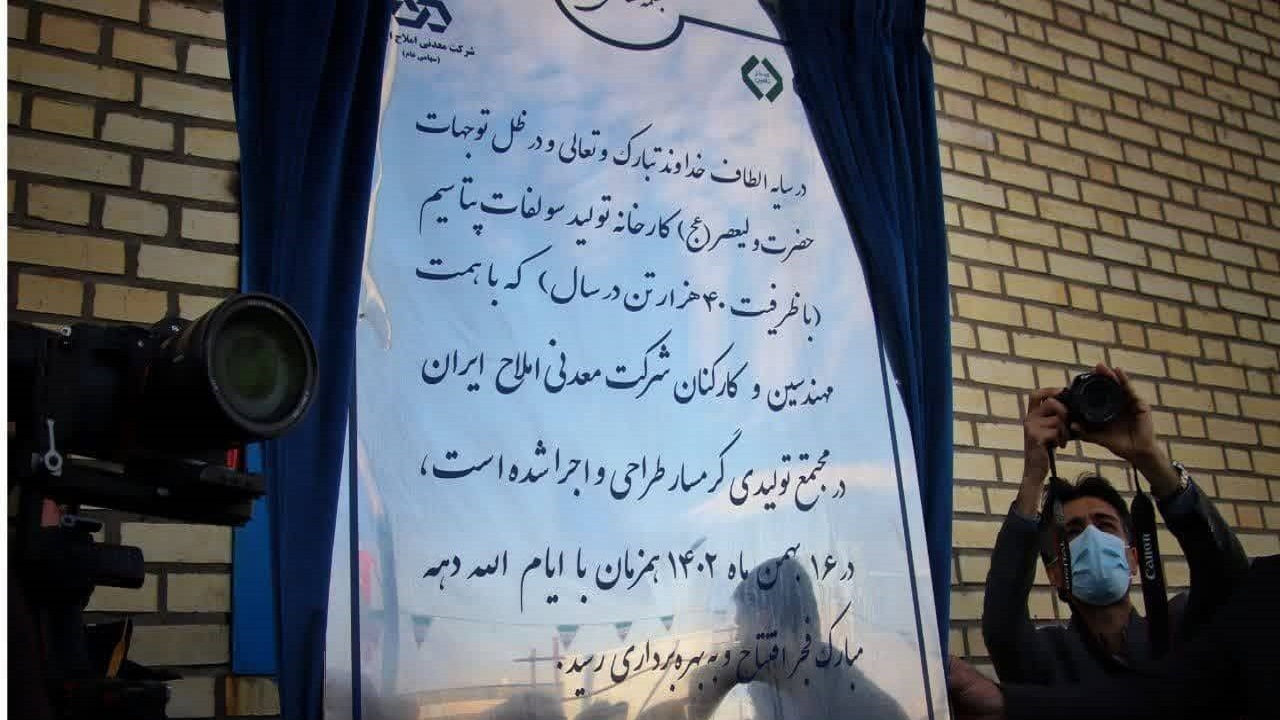 شرکت معدنی املاح ا
(سهامی عام)
در سایه الطاف خداوند تبارک و تعالی و در ظل توجهات
حضرت ولیعصر (عج) کارخانه تولید سولفات پتاسیم
(با ظرفیت ۴۰ هزار تن در سال) که با همت
مهندسین و کارکنان شرکت معدنی املاح ایران
در مجتمع تولیدی گرمسار طراحی و اجرا شده است،
در ۱۶ بهمن ماه ۱۴۰۲ همزمان با ایام الله دهه
مبارک فجر افتتاح و به بهره برداری رسید.
Canon